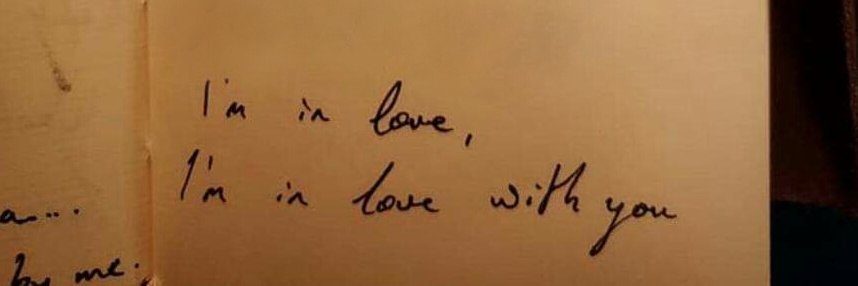 a...
by me.
I'm in love,
I'm in love with you